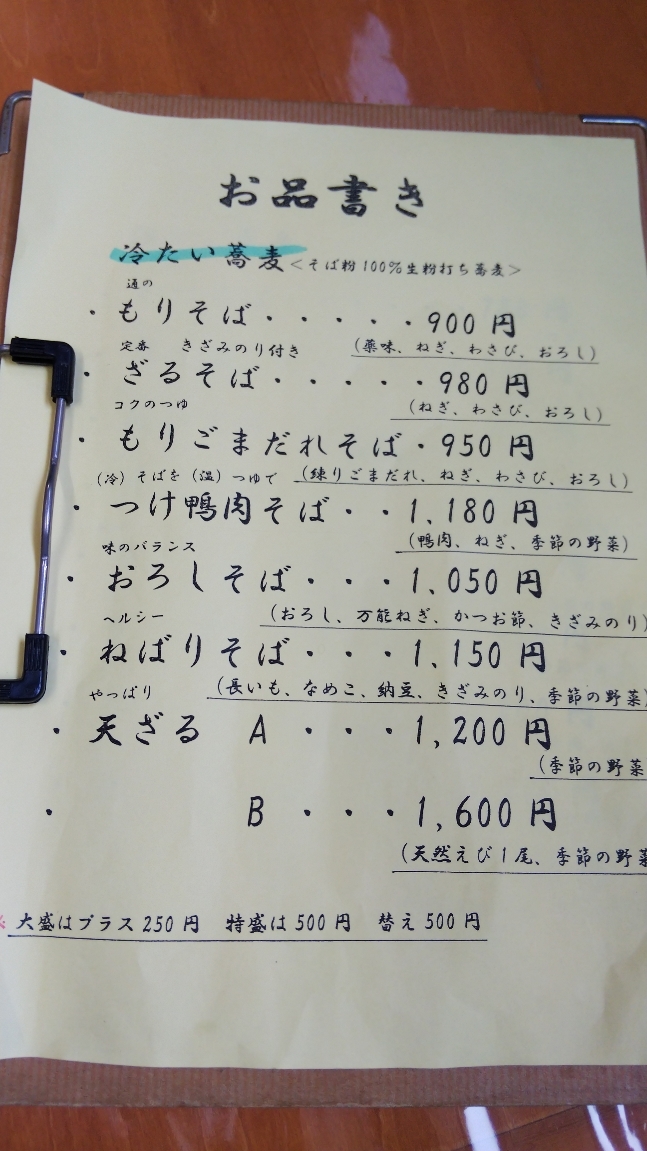 お品書き
冷たい蕎麦<そば粉100%生粉打ち蕎麦>
通の
・もりそば・・・・・900円
(薬味、ねぎ、わさび、おろし)
定番 きざみのり付き
・ざるそば・・・・・980円
(ねぎ、わさび、おろし)
コクのつゆ
・もりごまだれそば・950円
(練りごまだれ、ねぎ、わさび、おろし)
(冷)そばを(温)つゆで
・つけ鴨肉そば・・1,180円
(鴨肉、ねぎ、季節の野菜)
味のバランス
・おろしそば・・・1,050円
(おろし、万能ねぎ、かつお節、きざみのり)
ヘルシー
・ねばりそば・・・1,150円
(長いも、なめこ、納豆、きざみのり、季節の野菜)
やっぱり
・天ざる A・・・1,200円
(季節の野菜
・ B・・・1,600円
(天然えび1尾、季節の野菜
※大盛はプラス250円 特盛は500円 替え500円